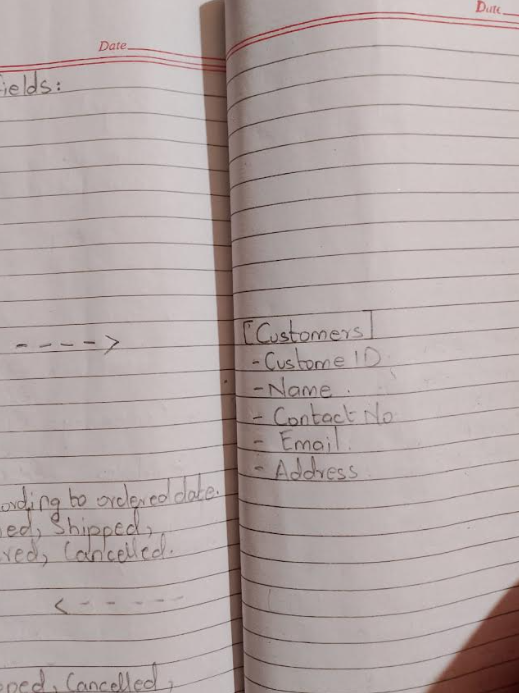 Date
ields:
---->
ording to ordered date.
ed, Shipped,
red, Cancelled.
<-----
ped, Cancelled,
Date
[Customers]
- Custome ID
- Name.
- Contact No
- Email.
- Address.